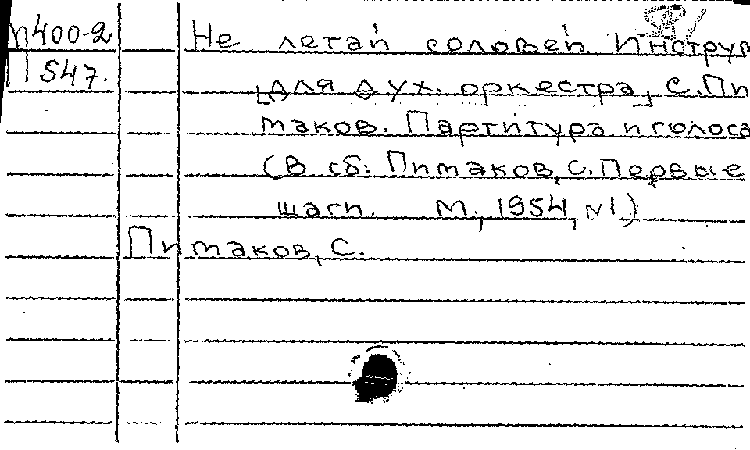 п400-2
П547.
Не летай соловей Инструм
для дух. оркестра, С.Пи
маков. Партитура и голоса
(В сб: Пимаков, С. Первые
шаги. М., 1954, №1.)
Пимаков, С.